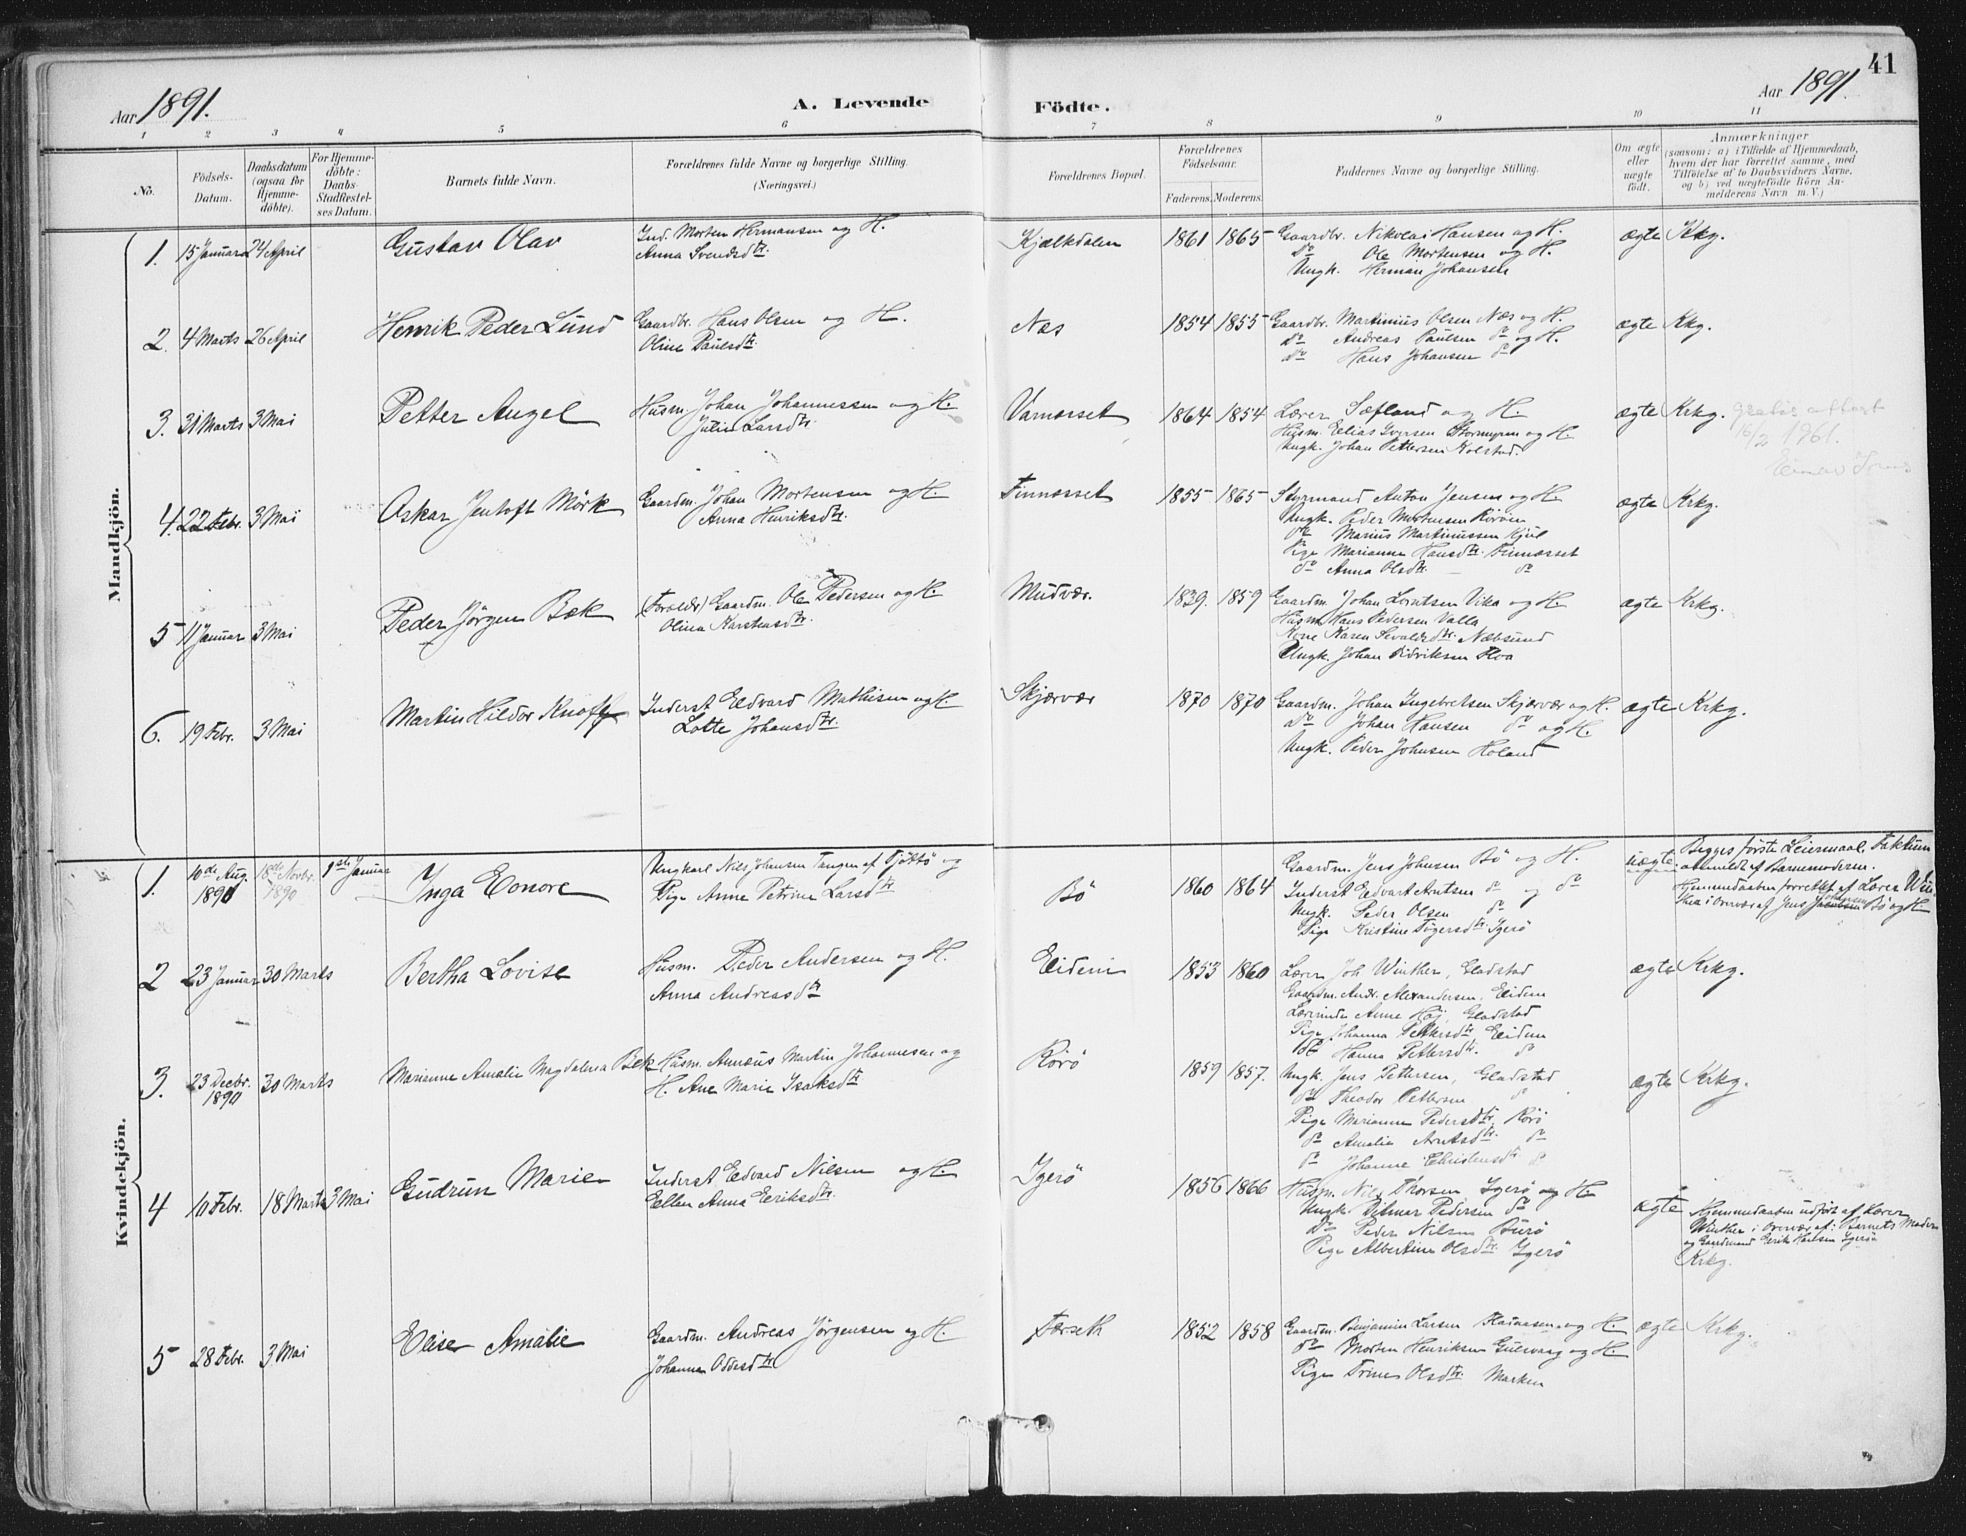 Aar 1891.
A. Levende
Födte.
Aar 1891.
41
1 2 3 4 5 6 7 8 9 10 11
No.
Födsels-
Datum.
Daabsdatum
(ogsaa för
Hjemme-
döbte).
For Hjemme-
döbte:
Daabs-
Stadfæstel-
ses Datum.
Barnets fulde Navn.
Forældrenes fulde Navne og borgerlige Stilling.
(Næringsvei.)
Forældrenes Bopæl.
Forældrenes
Födselsaar.
Faderens. Moderens.
Faddernes Navne og borgerlige Stilling.
Om ægte
eller
uægte
födt.
Anmærkninger
(saasom: a) i Tilfælde af Hjemmedaab,
hvem der har forrettet samme, med
Tilföielse af to Daabsvidners Navne,
og b) ved uægtefödte Börn An-
melderens Navn m. V.)
Mandkjön.
1. 15 Januar 24 April
Gustav Olav
Ind. Morten Hermansen og H.
Anna Svendsdtr.
Kjælkdalen
1861 1865
Gaardbr. Nikolai Hansen og H.
do Ole Mortensen og H.
Ungk. Herman Johansen
ægte Krkg.
2. 4 Marts 26 April
Henrik Peder Lund
Gaardbr. Hans Olsen og H.
Oline Paulsdtr.
Næs
1854 1855
Gaardbr. Martinius Olsen Næs og H.
do Andreas Paulsen do og H.
do Hans Johansen do
ægte Krkg.
3. 31 Marts 3 Mai
Petter Angel
Husm. Johan Johannessen og H.
Julie Larsdtr.
Vamsset
1864 1854
Lærer Sæfland og H.
Husm. Elias Iversen Stormyren og H.
Ungk. Johan Pettersen Kolstad.
ægte Krkg.
16/2 1961.
4. 22 Febr. 3 Mai
Askar Jentoft Mörk
Gaardm. Johan Mortensen og H.
Anna Henriksdtr.
Finnæsset
1855 1865
Styrmand Anton Jensen og H.
Ungk. Peder Mortensen Rörön
do Marius Martinussen Kjul
Pige Marianne Hansdtr. Finnæsset
do Anna Olsdtr. do
ægte Krkg.
5 11 Januar 3 Mai
Peder Jörgen Bek
(Forældr) Gaardm. Ole Pedersen og H.
Olina Karstensdtr.
Mudvær.
1839. 1859
Gaardm. Johan Lorntsen Vika og H.
Husm. Hans Pedersen Valla
Kone Karen Sevaldsdtr. Næbsund
Ungk. Johan Didriksen Hoa
ægte Krkg.
6. 19 Febr. 3 Mai
Martin Hildor Knoff
Inderst Edvard Mathisen og H.
Lotte Johansdtr.
Skjærvær
1870 1870
Gaardm. Johan Ingebretsen Skjærvær og H.
do Johan Hansen do og H.
Ungk. Peder Johnsen Holand
ægte Krkg.
Kvindekjön.
1. 10de Aug. 1890 18de Novbr. 1890 1ste Januar
Inga Eonore
Ungkarl Nils Johansen Tangen af Tjöttö og
Pige Anne Petrine Larsdtr
Bö
1860 1864
Gaardm. Jens Johnsen Bö og H.
Inderst Edvart Arntsen do og do
Ungk. Peder Olsen do
Pige Kristine Tögersdtr Igerö
uægte
Begges förste Leiermaal. Faktum
anmeldt af Barnemoderen.
Hjemmedaaben forrettet af Lærer Win-
ther i Overvær af Jens Johnsen Bö og H.
2 23 Januar 30 Marts
Bertha Lovise
Husm. Peder Andersen og H.
Anna Andreasdtr
Eidem
1853 1860
Lærer Joh Winther, Gladstad
Gaardm. Andr. Alexandersen, Eidem
Lærerinde Anne Höj, Gladstad
Pige Johanna Pettersdtr Eidem
do Hanna Pettersdtr. do
ægte Krkg.
3. 23 Decbr. 1890 30 Marts
Marianne Amalie Magdalena Bek
Husm. Annæus Martin Johannesen og
H. Ane Marie Isaksdtr
Rörö
1859 1857.
Ungk. Jens Pettersen, Gladstad
do Theodor Pettersen do
Pige Marianne Pedersdtr. Rörö
do Amalia Arntsdtr. do
do Johanne Christensdtr do
ægte Krkg.
4 10 Febr. 18 Marts 3 Mai
Gudrun Marie
Inderst Edvard Nilsen og H.
Ellen Anna Eriksdtr.
Igerö
1856 1866
Husm. Nils Thorsen Igerö og H.
Ungk. Detmar Pedersen do
do Peder Nilsen Burö
Pige Albertine Olsdtr. Igerö
ægte
Hjemmedaaben udfört af Lærer
Winther i Overvær af: Barnets Moder
og Gaardmand Erik Hansen Igerö
Krkg.
5 28 Febr. 3 Mai
Elise Amalie
Gaardm. Andreas Jörgensen og H.
Johanna Oddesdtr
Færseth
1852 1858
Gaardm. Benjamin Larsen og H.
do Morten Henriksen Gulsvaag og H.
Pige Trine Olsdtr. Marken
ægte Krkg.